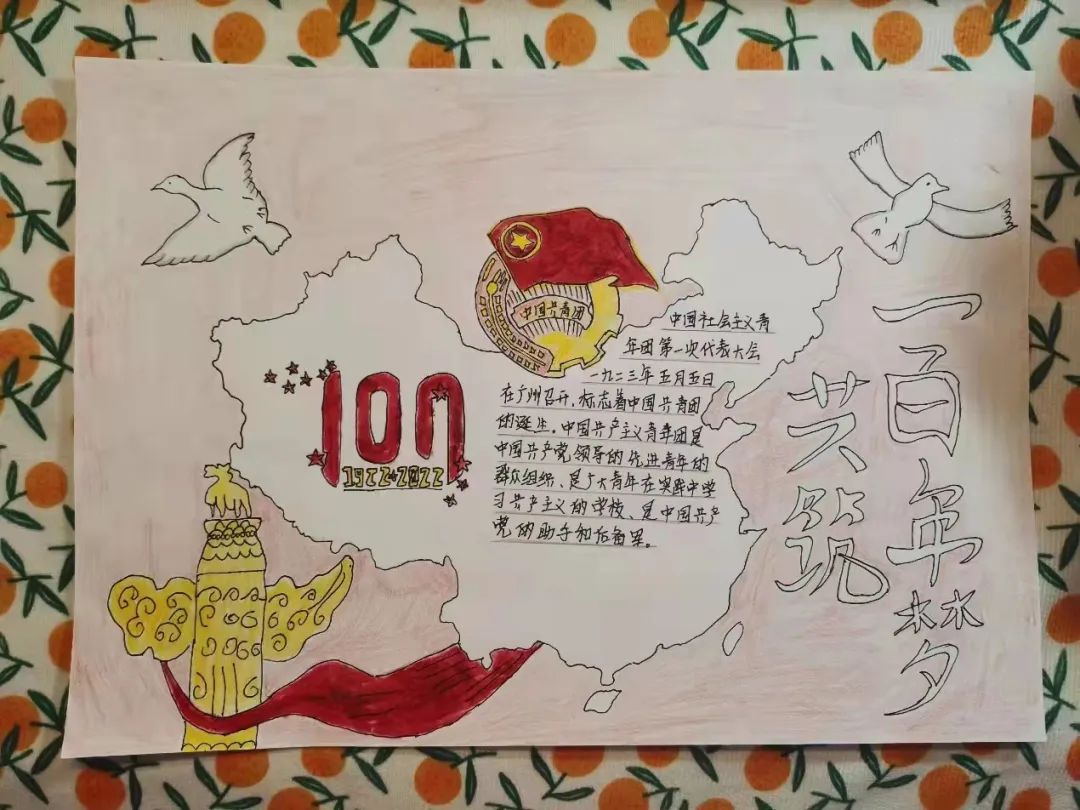 中国共青团
100
1922-2022
中国社会主义青
年团第一次代表大会
一九二三年五月五日
在广州召开,标志着中国共青团
的诞生。中国共产主义青年团是
中国共产党领导的先进青年的
群众组织、是广大青年在实践中学
习共产主义的学校、是中国共产
党的助手和后备军。
共筑
一百年梦